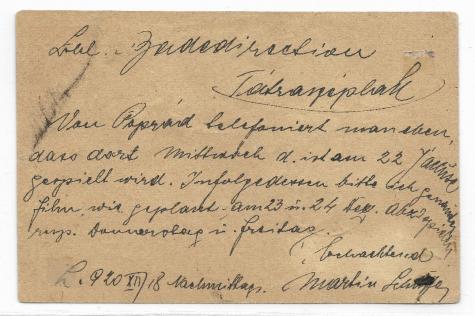 Löbl. Badedirection
Tátraszéplak
Von Poprád telefoniert man eben,
dass dort Mittwoch d. ist am 22
gespielt wird. Infolgedessen bitte ich
Film, wie geplant am 23 u. 24 Dez. abzuspielen
resp. Donnerstag u. Freitag.
Achtend
L. 920 XII/18 Nachmittags. Martin